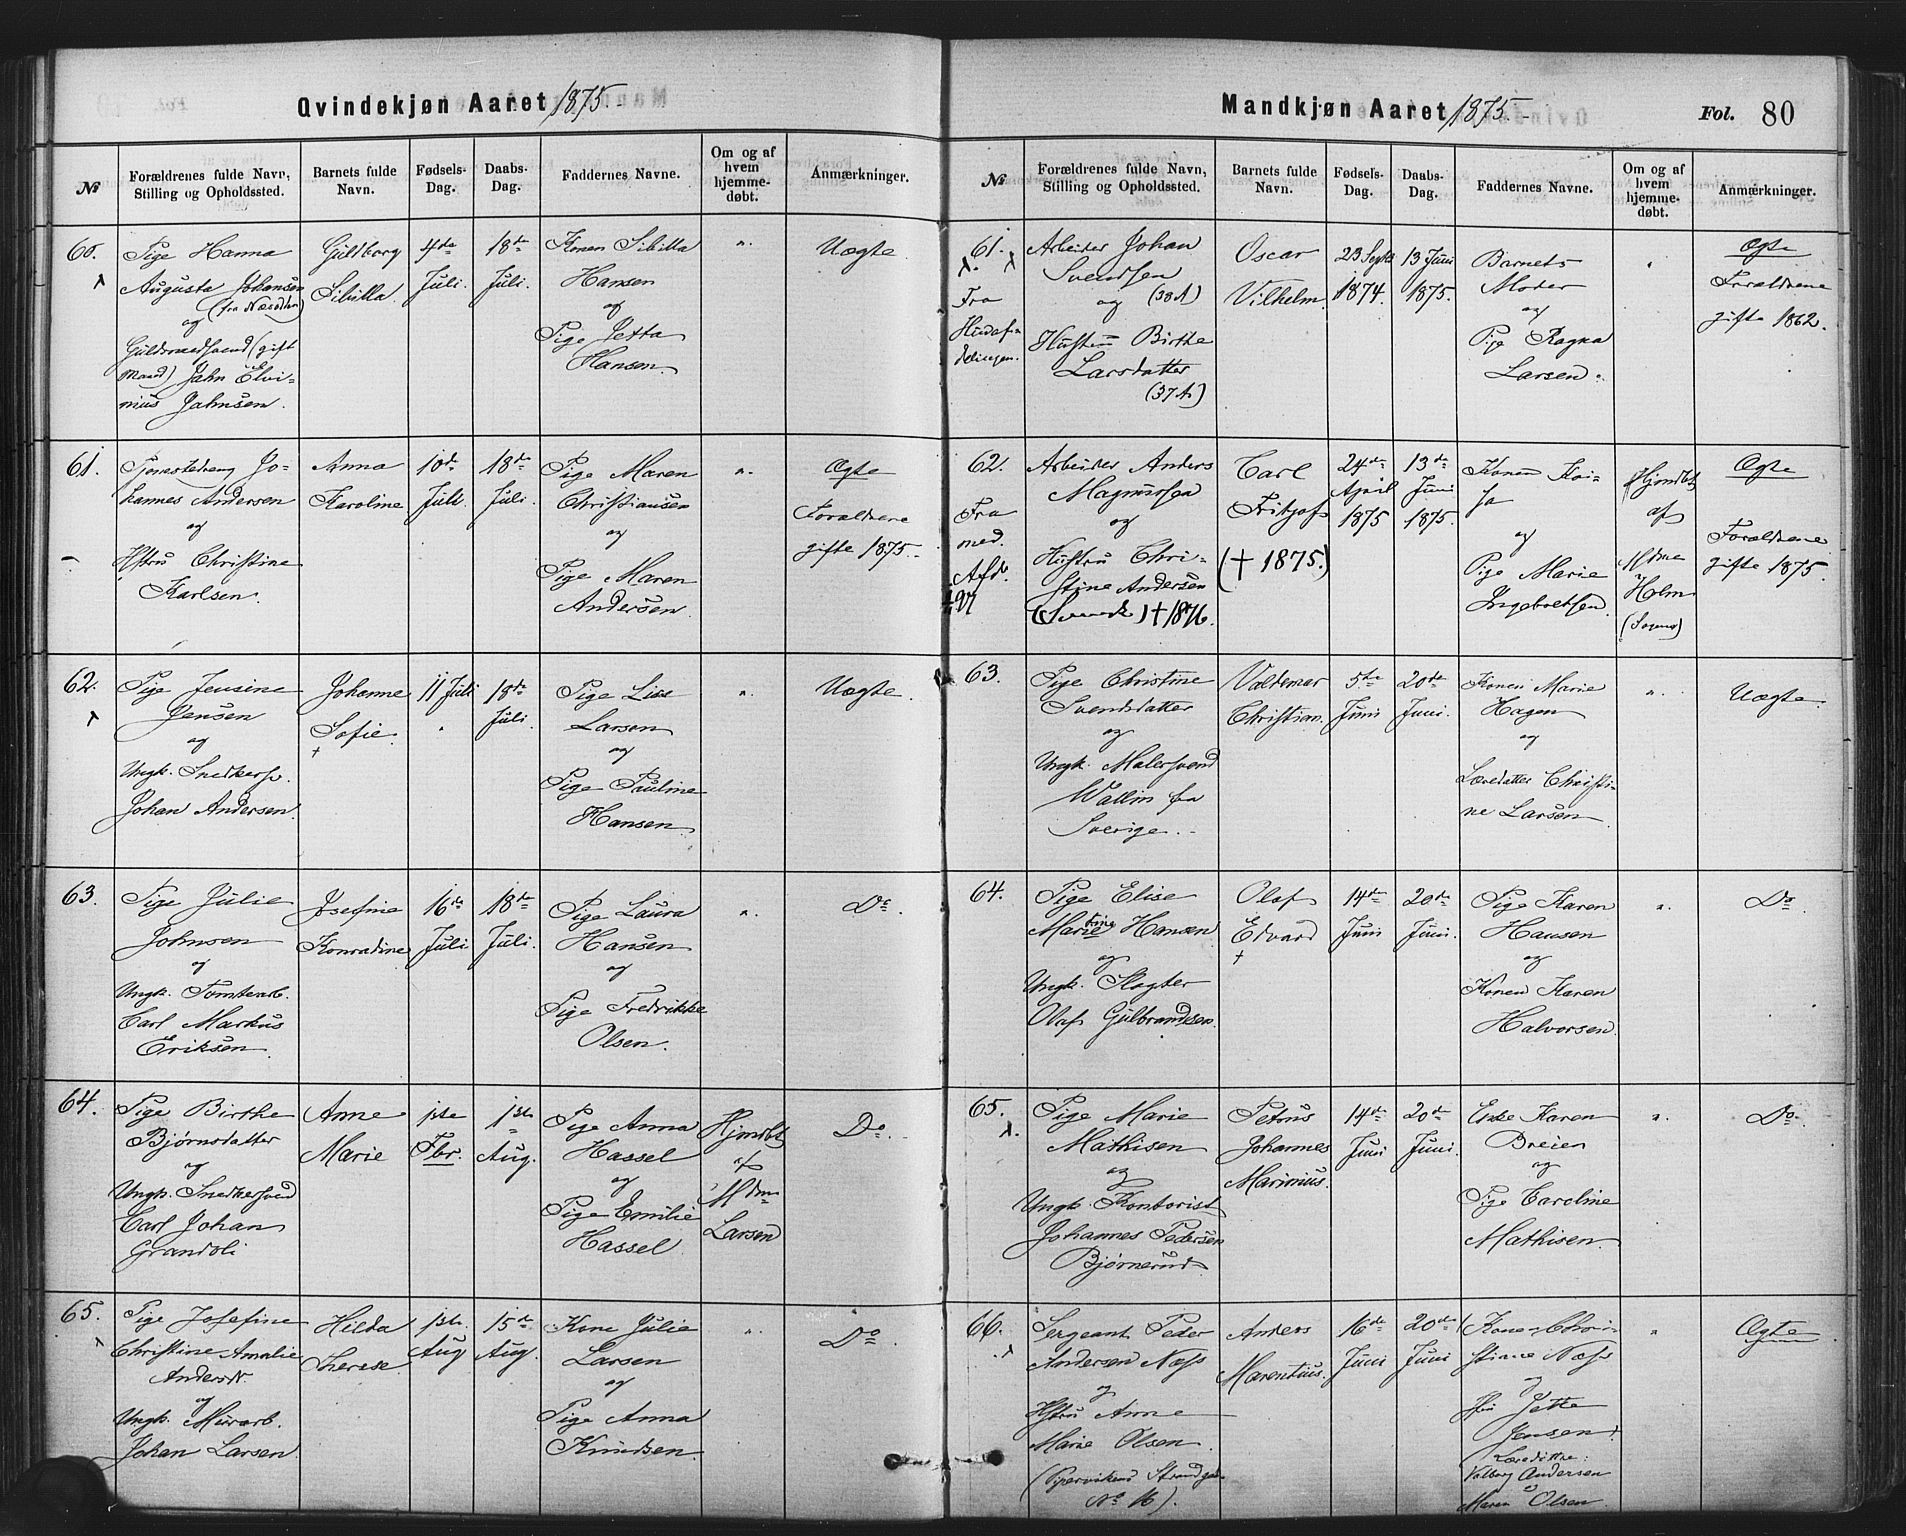 Qvindekjøn Aaret 1875.
№
Forældrenes fulde Navn, Stilling og Opholdssted.
Barnets fulde Navn.
Fødsels-Dag.
Daabs-Dag.
Faddernes Navne.
Om og af hvem hjemme-døbt.
Anmærkninger.
60.
Pige Hanna
Augusta Johansen
(fra Næsodden)
og
Guldsmedsvend (gift
Mand) Jahn Elvi-
nius Jahnsen.
Guldborg
Sibilla.
4de
Juli.
18de
Juli.
Konen Sibilla
Hansen
og
Pige Jetta
Hansen.
"
Uægte
61.
Tjenestedreng Jo-
hannes Andersen
og
Hstru Christine
Karlsen.
Anna
Karoline
10de
Juli.
18de
Juli.
Pige Maren
Christiansen
og
Pige Maren
Andersen.
"
Ægte
Forældrene
gifte 1875.
62.
Pige Jensine
Jensen
og
Ungk. Snedkersv.
Johan Andersen.
Johanne
Sofie.
+
11 Juli
18de
Juli.
Pige Lise
Larsen
og
Pige Pauline
Hansen
"
Uægte.
63.
Pige Julie
Johnsen
og
Ungk. Tomtearb.
Carl Markus
Eriksen.
Josefine
Konradine
16de
Juli
18de
Juli.
Pige Laura
Hansen
og
Pige Fredrikke
Olsen.
"
Do.
64.
Pige Birthe
Bjørnsdatter
og
Ungk. Snedkersvend
Carl Johan
Grandoli
Anne
Marie
1ste
Fbr.
1ste
Aug.
Pige Anna
Hassel
og
Pige Emilie
Hassel
Hjmdbt
af
Mdm
Larsen
Do.
65.
Pige Josefine
Christine Amalie
Andersdr.
og
Ungk. Murarb.
Johan Larsen
Hilda
Therese.
1ste
Aug
15de
Aug.
Kone Julie
Larsen
og
Pige Anna
Knudsen
"
Do
Mandkjøn Aaret 1875
Fol. 80
№
Forældrenes fulde Navn, Stilling og Opholdssted.
Barnets fulde Navn.
Fødsels-Dag.
Daabs-Dag.
Faddernes Navne.
Om og af hvem hjemme-døbt.
Anmærkninger.
61.
Fra
Arbeider Johan
Svendsen
og (38 A)
Hustru Birthe
Larsdatter
(37 A)
Oscar
Vilhelm
23 Septr
1874.
13 Juni
1875.
Barnets
Moder
og
Pige Ragna
Larsen.
"
Ægte
Forældrene
gifte 1862.
62.
Fra
med.
Afd.
Arbeider Anders
Magnussen
og
Hustru Chri-
stine Andersen
(Svensk) † 1876.
Carl
Fritjof
(† 1875.)
24de
April
1875
13de
Juni
1875.
Konen Kai-
sa
og
Pige Marie
Ingeboltsen.
Hjmdbt
af
Mdme
Holm
Ægte
Forældrene
gifte 1875.
63.
Pige Christine
Svendsdatter
og
Ungk. Malersvend
Wallin fra
Sverige.
Valdemar
Christian.
5te
Juni
20de
Juni.
Konen Marie
Hagen
og
Læredatter Christi-
ne Larsen
"
Uægte
64.
Pige Elise
Martine Hansen
og
Ungk. Slagter
Olaf Gulbrandsen.
Olaf
Edvard
+
14de
Juni
20de
Juni.
Pige Karen
Hansen
og
Konen Karen
Halvorsen.
"
Do.
65.
Pige Marie
Mathisen
og
Ungk. Kontorist
Johannes Pedersen
Bjørnerud
Petrus
Johannes
Marinius.
14de
Juni
20de
Juni.
Enke Karen
Breien
og
Pige Caroline
Mathisen.
"
Do.
66.
Sergeant Peder
Andersen Næss
og
Hstru Anne
Marie Olsen.
(Pipervikens Strandgade
No 16).
Anders
Marentius.
16de
Juni
20de
Juni
Konen Chri-
stiane Næss
og
Jette
Jensen.
Læredøttre:
Valborg Andersen
Maren Olsen
"
Ægte